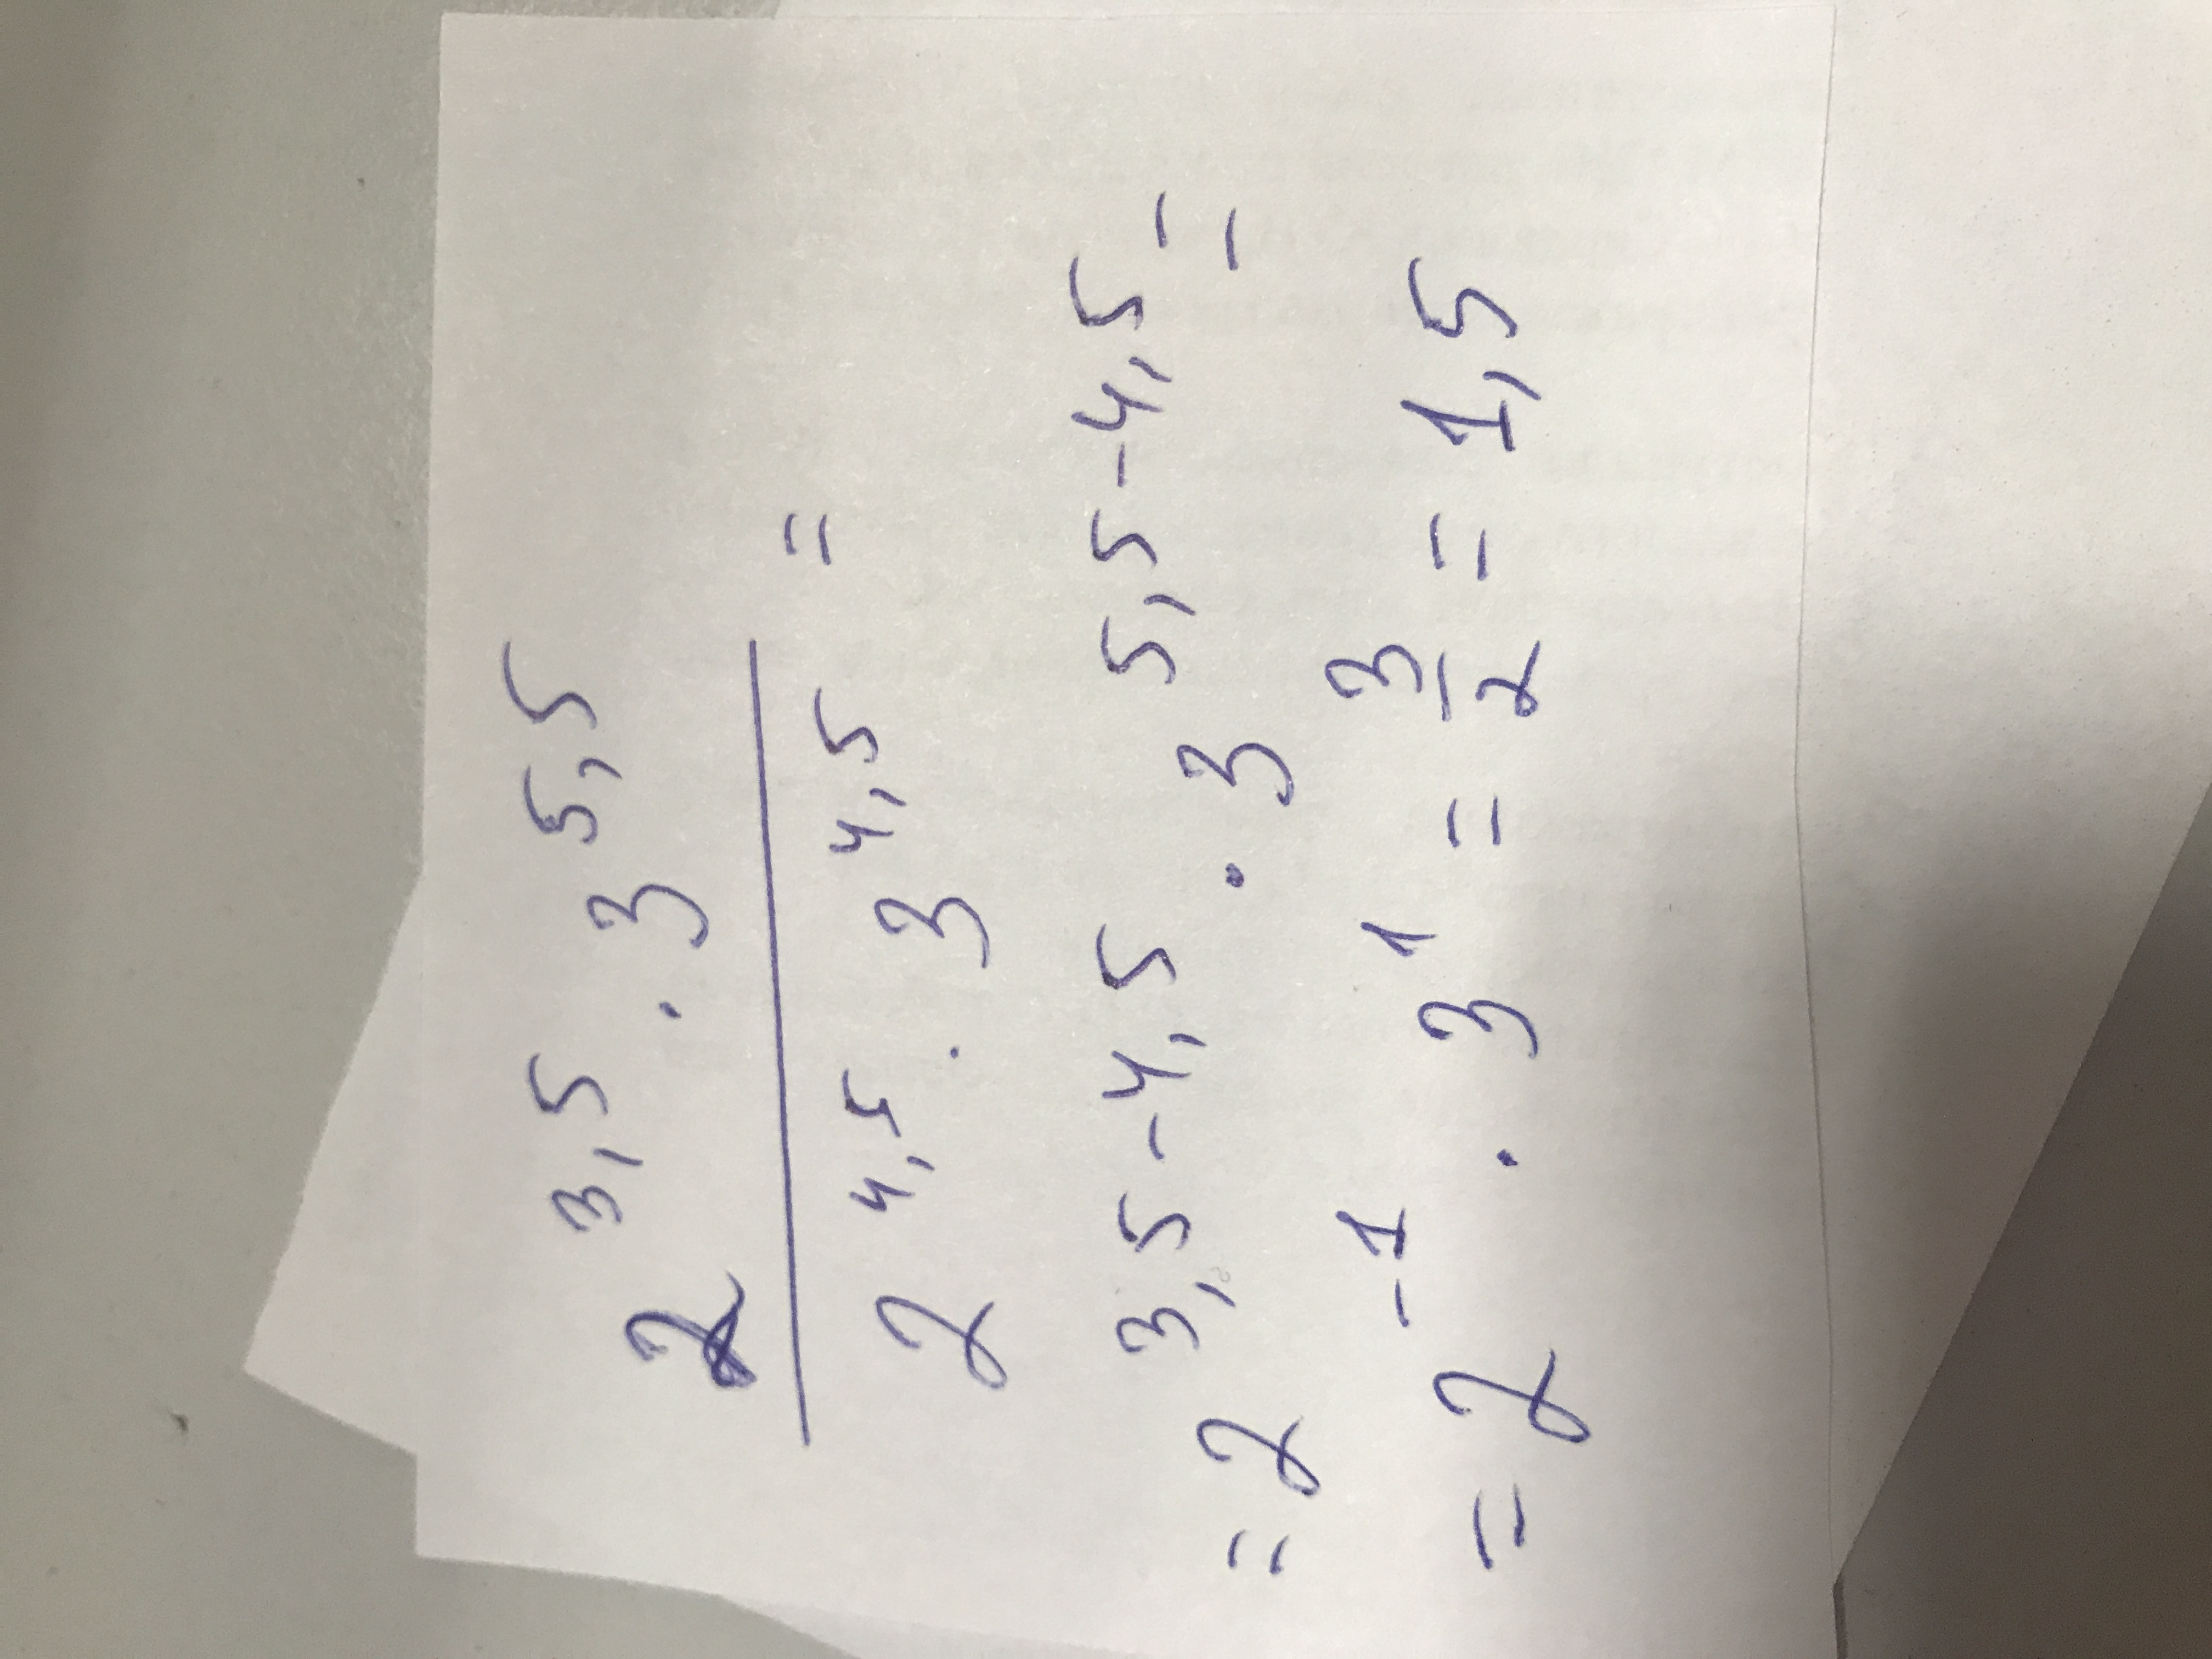 2^3,5 · 3^5,5
2^4,5 · 3^4,5 =
= 2^3,5-4,5 · 3^5,5-4,5 =
= 2^-1 · 3^1 = 3/2 = 1,5